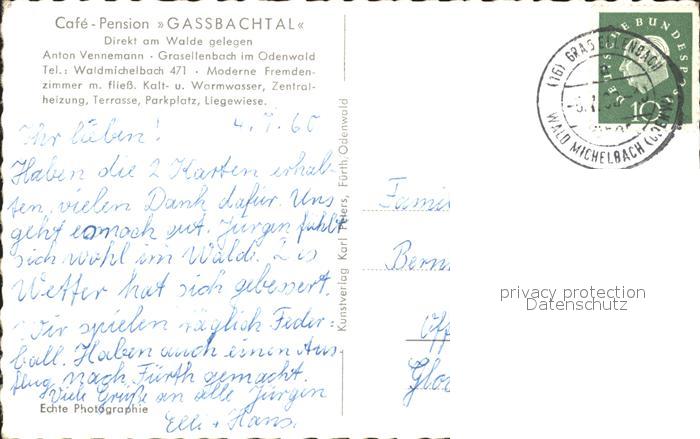 Café-Pension »GASSBACHTAL«
Direkt am Walde gelegen
Anton Vennemann · Grasellenbach im Odenwald
Tel.: Waldmichelbach 471 · Moderne Fremden-
zimmer m. fließ. Kalt- u. Warmwasser, Zentral-
heizung, Terrasse, Parkplatz, Liegewiese.
4.7.60
Ihr lieben!
Haben die 2 Karten erhal-
ten, vielen Dank dafür. Uns
geht es noch gut. Jürgen fühlt
sich wohl im Wald. Das
Wetter hat sich gebessert.
Wir spielen täglich Feder=
ball. Haben auch einen Aus
flug nach Fürth gemacht.
Viele Grüße an alle Jürgen
Elli + Hans.
Echte Photographie
Kunstverlag Karl Peters, Fürth/Odenwald
DEUTSCHE BUNDESPOST
10
(16) GRASELLENBACH
WALD MICHELBACH (ODENW)
Famil
Bern
privacy protection
Datenschutz